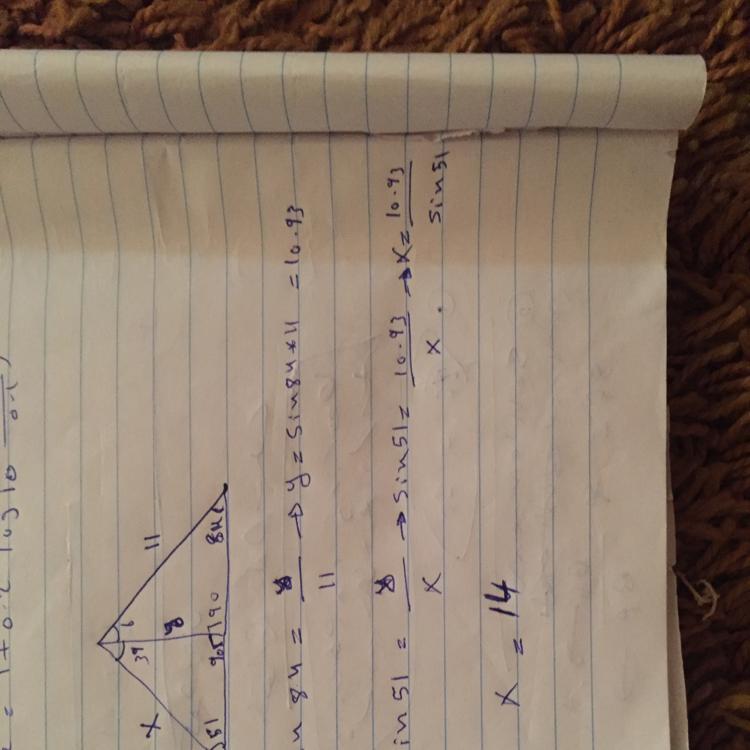 = 1 + 0.2 log 10
11
x
39
y
90
90
51
84
n 84 = y/11 → y = sin 84 * 11 = 10.93
in 51 = y/x → sin 51 = 10.93/x → x = 10.93/sin 51
x = 14